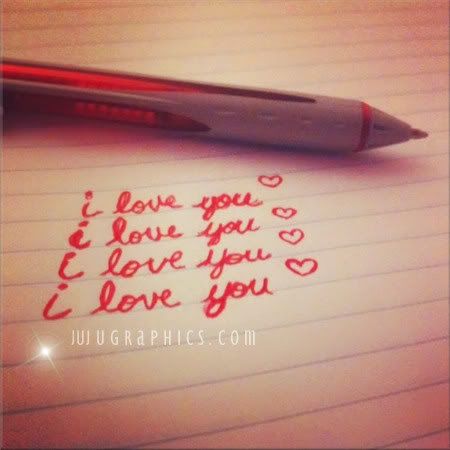 i love you ♡
i love you ♡
i love you ♡
i love you ♡
JUJUGRAPHICS.COM